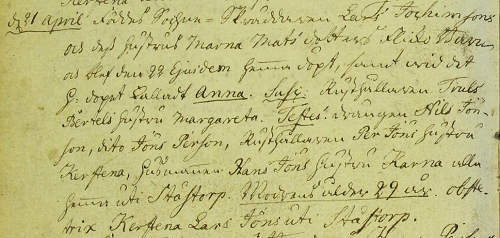 d. 21 April föddes Sochn-Skräddaren Lars Jochimsons
oc dess hustrus Marna Mats dotters flicko Barn
oc blef den 22 Ejusdem hema döpt, samt wid det
H: dopet kalladt Anna. Susc: Rusthållaren Truls
Bertels hustru Margareta. Testes: drängen Nils Jön-
son, dito Jöns Pärson, Rusthållaren Per Jöns hustru
Kerstena, husmannen Hans Jöns hustru Karna alla
hema uti Stästorp. Modrens ålder 29 år. obste-
trix Kerstena Lars Jöns uti Stästorp.